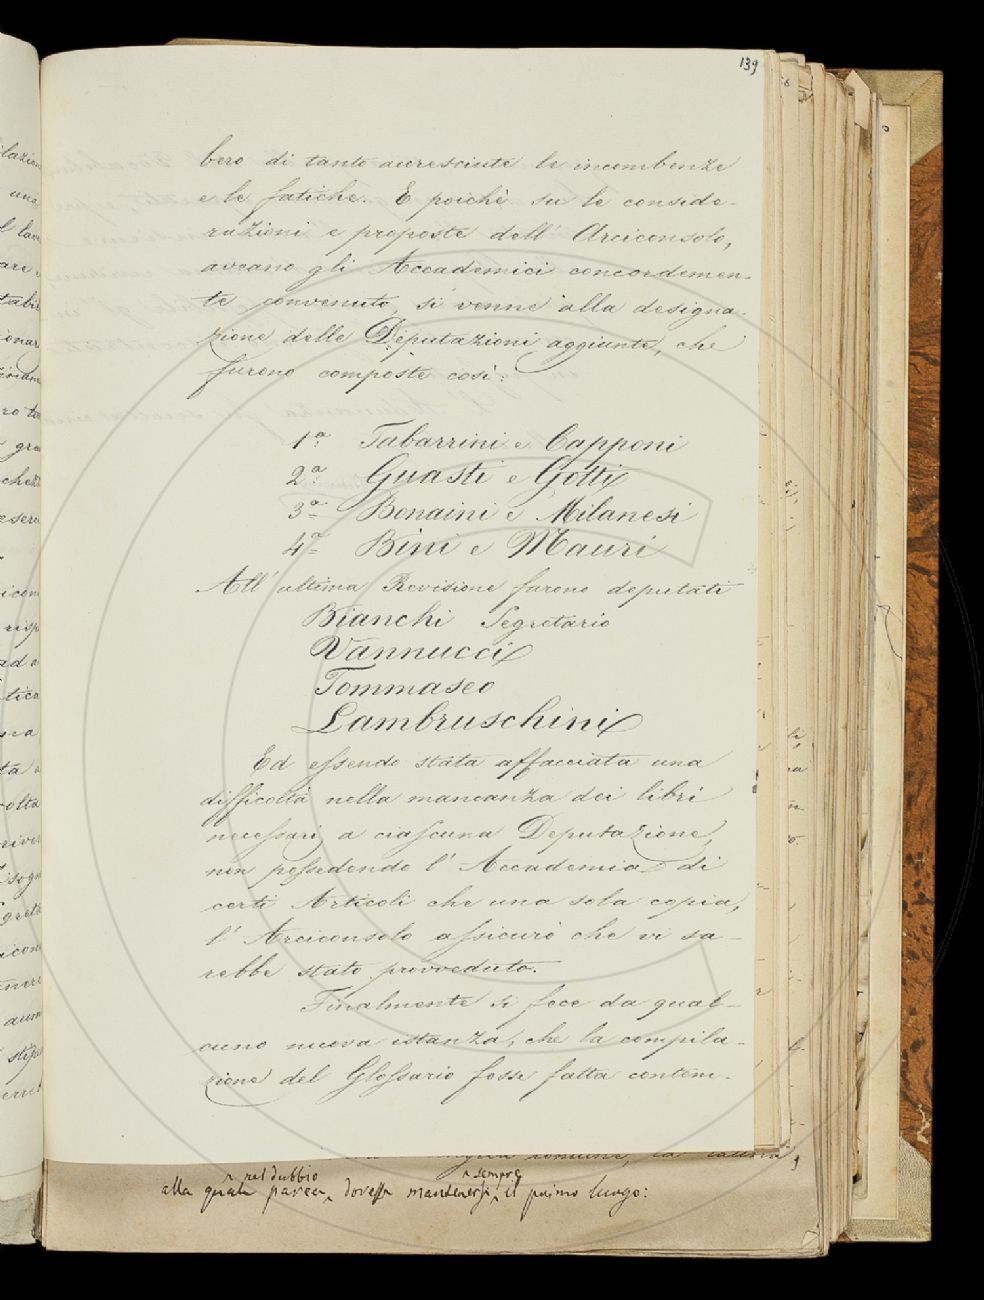 139
bero di tanto accresciute le incombenze
e le fatiche. E poichè su le conside-
razioni e proposte dell' Arciconsolo,
aveano gli Accademici concordemen-
te convenuto, si venne alla designa-
zione delle Deputazioni aggiunte, che
furono composte così:
1ª Tabarrini e Capponi
2ª Guasti e Gotti
3ª Bonaini e Milanesi
4ª Bini e Mauri
All' ultima Revisione furono deputati
Bianchi Segretario
Vannucci
Tommaseo
Lambruschini
Ed essendo stata affacciata una
difficoltà nella mancanza dei libri
necessarj a ciascuna Deputazione,
non possedendo l' Accademia di
certi Articoli che una sola copia,
l' Arciconsolo assicurò che vi sa-
rebbe stato provveduto.
Finalmente si fece da qual-
cuno nuova istanza, che la compila-
zione del Glossario fosse fatta contem-
nel dubbio sempre
alla quale parea dovesse mantenersi il primo luogo: